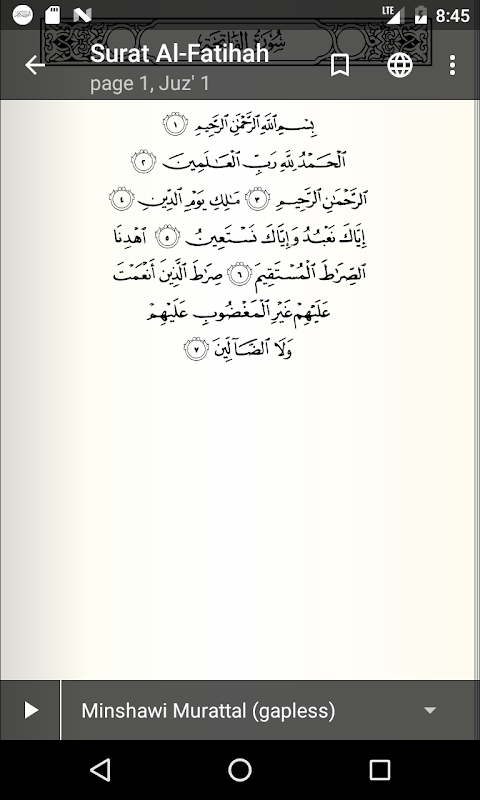 LTE 8:45
سُورَةُ الْفَاتِحَةِ
Surat Al-Fatihah
page 1, Juz' 1
بِسْمِ ٱللَّهِ ٱلرَّحْمَٰنِ ٱلرَّحِيمِ ١
ٱلْحَمْدُ لِلَّهِ رَبِّ ٱلْعَٰلَمِينَ ٢
ٱلرَّحْمَٰنِ ٱلرَّحِيمِ ٣ مَٰلِكِ يَوْمِ ٱلدِّينِ ٤
إِيَّاكَ نَعْبُدُ وَإِيَّاكَ نَسْتَعِينُ ٥ ٱهْدِنَا
ٱلصِّرَٰطَ ٱلْمُسْتَقِيمَ ٦ صِرَٰطَ ٱلَّذِينَ أَنْعَمْتَ
عَلَيْهِمْ غَيْرِ ٱلْمَغْضُوبِ عَلَيْهِمْ
وَلَا ٱلضَّآلِّينَ ٧
Minshawi Murattal (gapless)